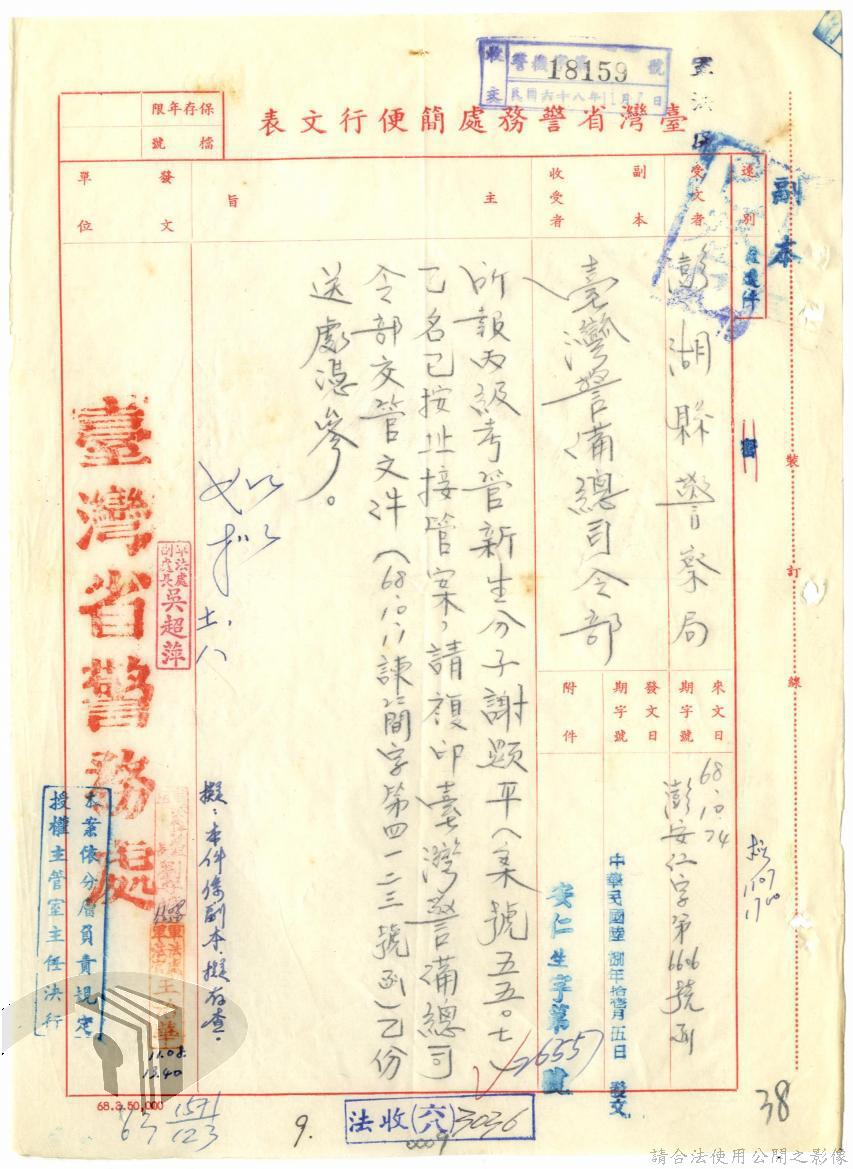 收文
警機
18159
號
民國六十八年11月7日
臺灣省警務處簡便行文表
保存年限
檔號
軍法
副本
速別
受文者
澎湖縣警察局
副本收受者
臺灣警備總司令部
來文日期字號
68.10.24
澎安仁字第6606號函
發文日期字號
中華民國陸捌年拾壹月五日發文
安仁生字第26557號
附件
主旨
所報丙級考管新生分子謝
平(案號五五○七)
乙名已按址接管案,請複印臺灣警備總司
令部交管文件(68.10.11諫簡字第四一二三號函)乙份
送處憑參。
發文單位
臺灣省警務處
如擬
十一、八
軍法處副處長吳超萍
擬:本件係副本,擬存查。
11.08.
13.40
本案依分層負責規定
授權主管室主任決行
裝訂線
1107
1700
68.3.50,000
63
1571
123
9.
法收(六八)3036
0009
38
請合法使用公開之影像